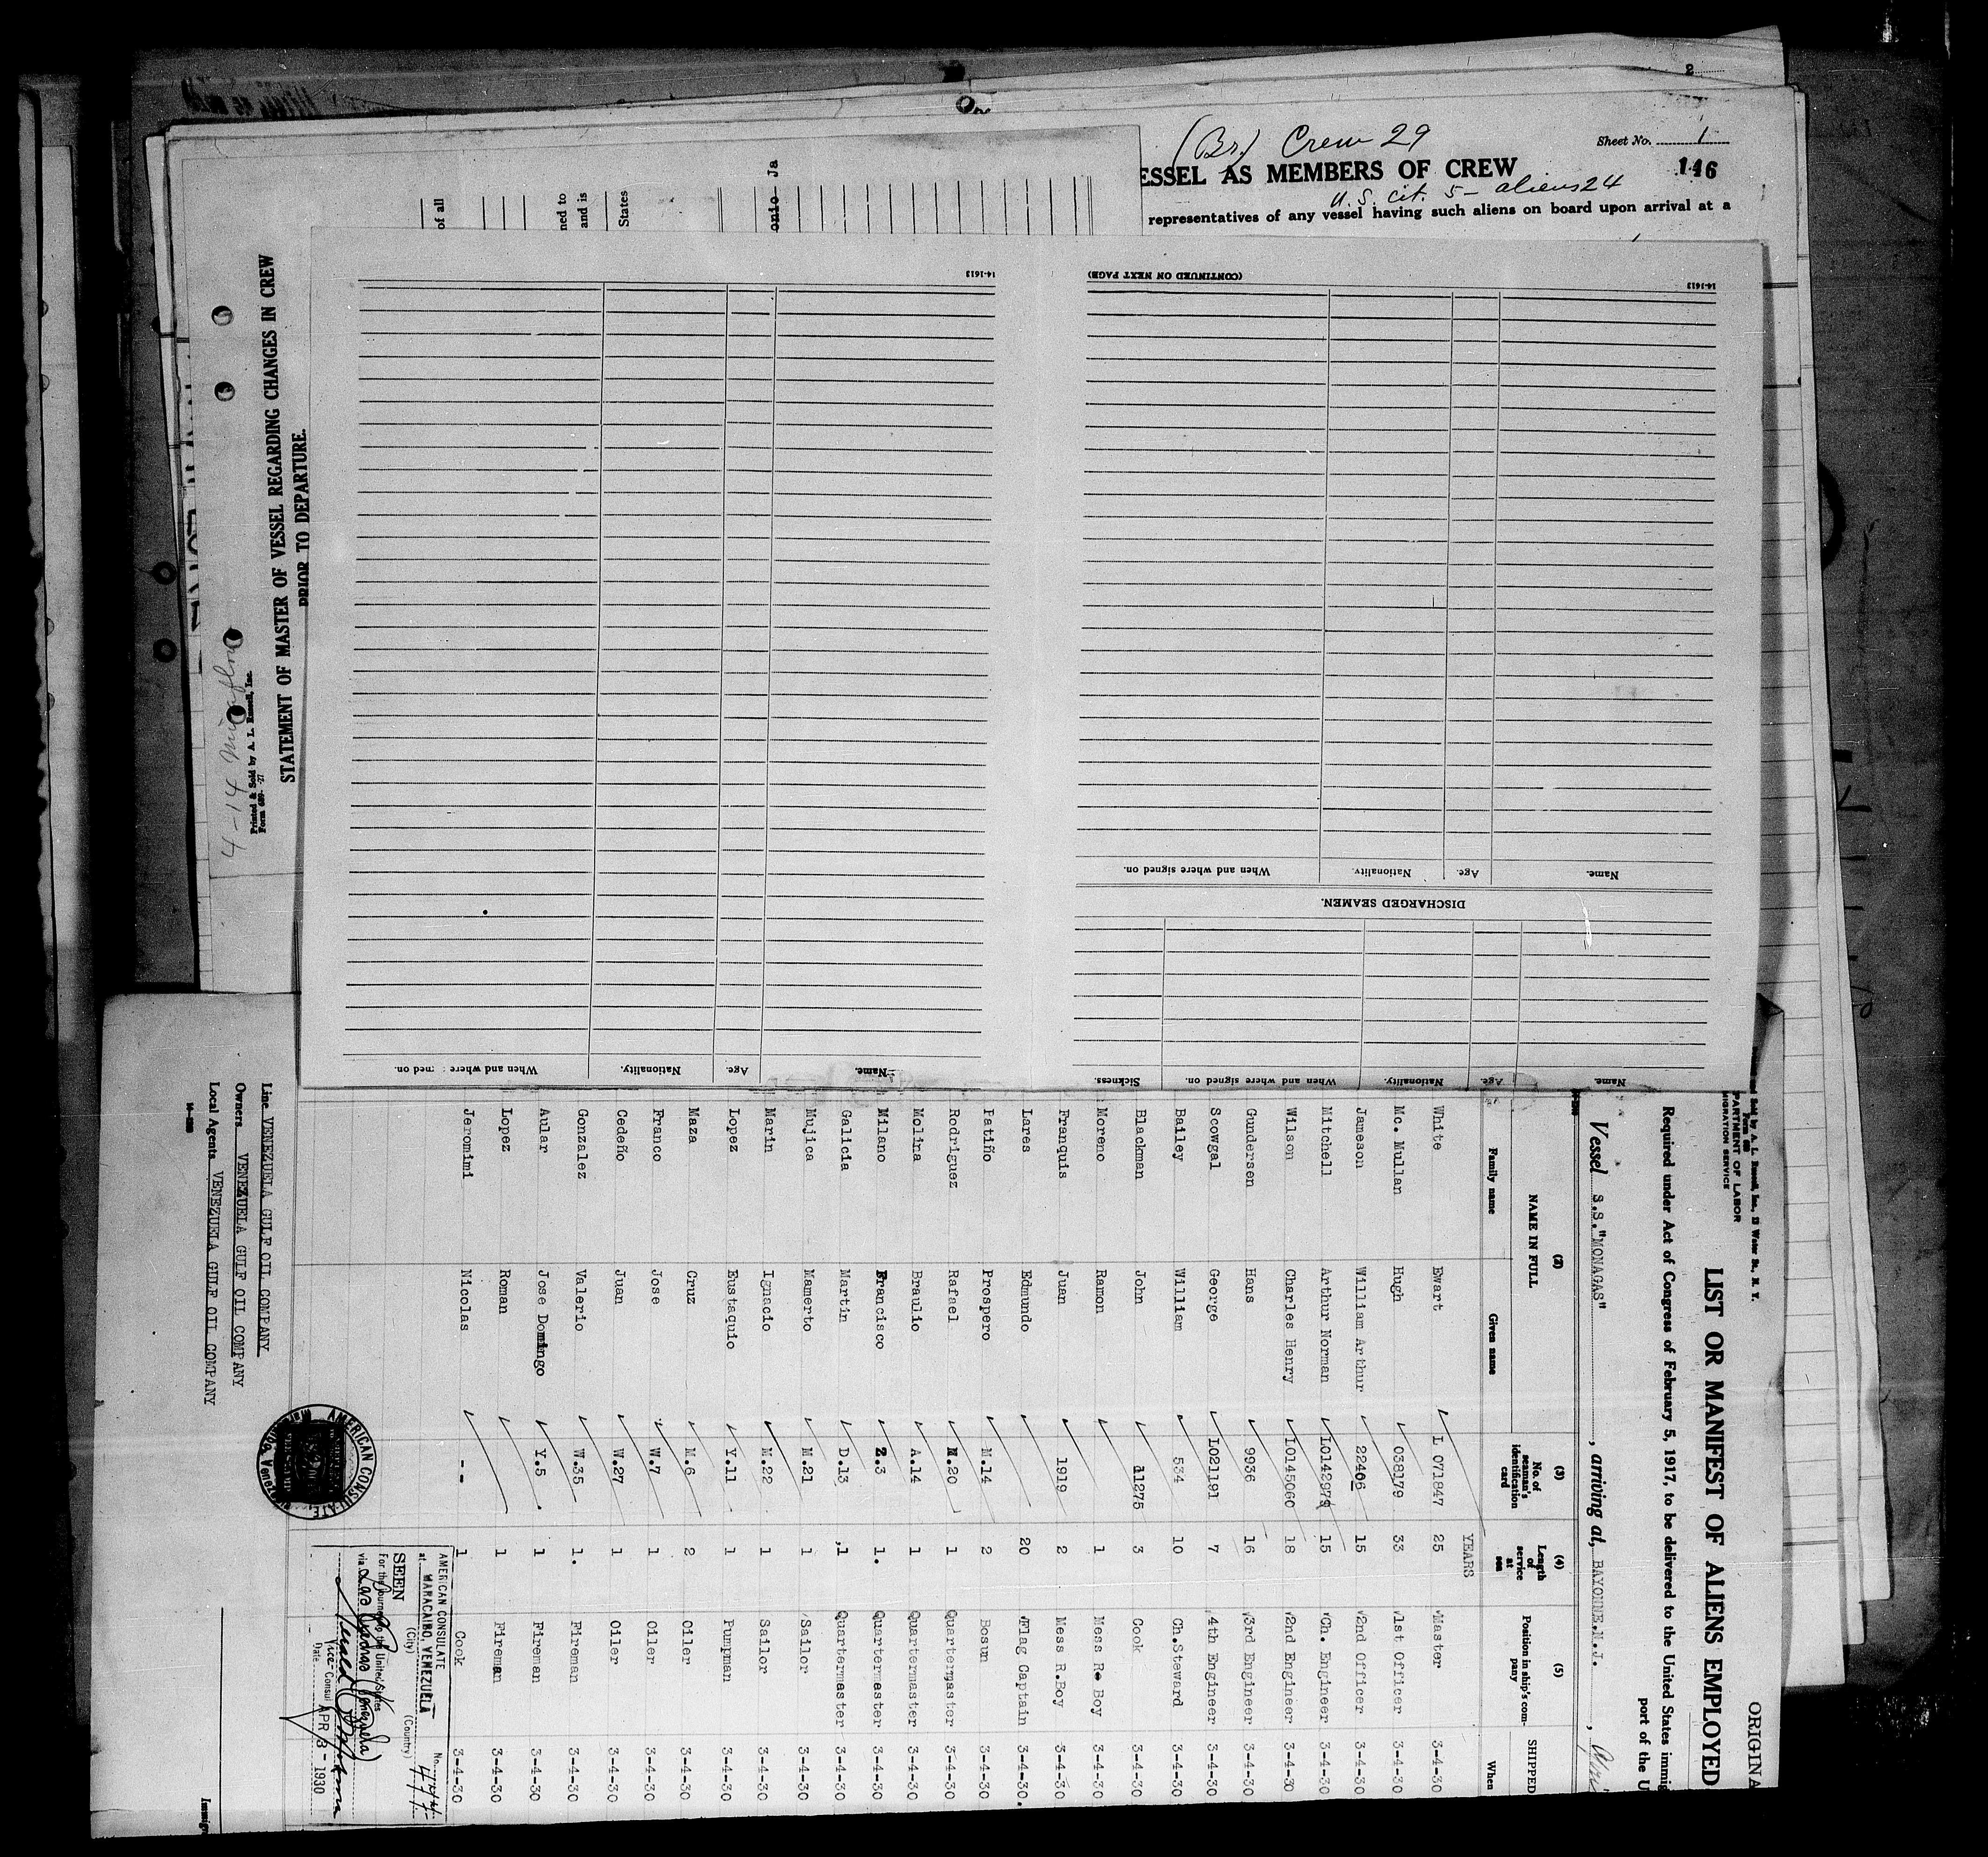 (Br) Crew 29
Sheet No. 1
ESSEL AS MEMBERS OF CREW
146
U.S. cit. 5 - aliens 24
representatives of any vessel having such aliens on board upon arrival at a
of all
ned to
and is
States
onio Ja
4-14
Printed & Sold by A. L. Russell, Inc.
STATEMENT OF MASTER OF VESSEL REGARDING CHANGES IN CREW
PRIOR TO DEPARTURE.
14-1613
(CONTINUED ON NEXT PAGE)
14-1613
Name. Age. Nationality. When and where signed on.
DISCHARGED SEAMEN.
Name. Age. Nationality. When and where signed on. Sickness.
Name. Age. Nationality. When and where ned on.
ORIGINA
Sold by A. L. Russell, Inc., Water St., N. Y.
PARTMENT OF LABOR
MIGRATION SERVICE
LIST OR MANIFEST OF ALIENS EMPLOYED
Required under Act of Congress of February 5, 1917, to be delivered to the United States immig
port of the U
Vessel S.S."MONAGAS", arriving at, BAYONNE.N.J.,
(2) (3) (4) (5)
NAME IN FULL No. of seaman's identification card Length of service at sea Position in ship's company SHIPPED
Family name Given name When
YEARS
White Ewart L 071847 25 Master 3-4-30
Mc. Mullan Hugh 038179 33 1st Officer 3-4-30
Jameson William Arthur 22406 15 2nd Officer 3-4-30
Mitchell Arthur Norman L0142979 15 Ch. Engineer 3-4-30
Wilson Charles Henry L0145060 18 2nd Engineer 3-4-30
Gundersen Hans 9936 16 3rd Engineer 3-4-30
Scowgal George L021191 7 4th Engineer 3-4-30
Bailey William 534 10 Ch.Steward 3-4-30
Blackman John 11275 3 Cook 3-4-30
Moreno Ramon 1 Mess Rm Boy 3-4-30
Franquis Juan 1919 2 Mess R.Boy 3-4-30
Lares Edmundo 20 Flag Captain 3-4-30.
Patiño Prospero M.14 2 Bosun 3-4-30
Rodriguez Rafael N.20 1 Quartermaster 3-4-30
Molina Braulio A.14 1 Quartermaster 3-4-30
Milano Francisco Z.3 1. Quartermaster 3-4-30
Galicia Martin D.13 1 Quartermaster 3-4-30
Mujica Mamerto M.21 1 Sailor 3-4-30
Marin Ignacio M.22 1 Sailor 3-4-30
Lopez Eustaquio Y.11 1 Pumpman 3-4-30
Maza Cruz M.6 2 Oiler 3-4-30
Franco Jose W.7 1 Oiler 3-4-30
Cedeño Juan W.27 1 Oiler 3-4-30
Gonzalez Valerio W.35 1. Fireman 3-4-30
Aular Jose Domingo Y.5 1 Fireman 3-4-30
Lopez Roman 1 Fireman 3-4-30
Jeromimi Nicolas -- 1 Cook 3-4-30
AMERICAN CONSULATE No. 474
at MARACAIBO, VENEZUELA
(City) (Country)
SEEN
For the journey to the United States
via Las Piedras Venezuela
Vice-Consul
Date APR 3 - 1930
AMERICAN CONSULATE
Line VENEZUELA GULF OIL COMPANY
Owners VENEZUELA GULF OIL COMPANY
Local Agents VENEZUELA GULF OIL COMPANY
Immigr